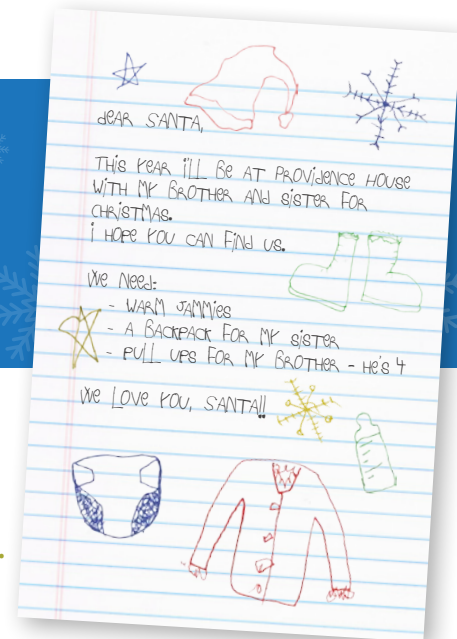 dEAR SANTA,
THiS YEAR i'LL BE AT PROViDENCE HOUSE
WiTH MY BROTHER AND SiSTER FOR
CHRiSTMAS.
i HOPE YOU CAN FiND US.
WE NEEd:
- WARM JAMMiES
- A BACKPACK FOR MY SiSTER
- PULL UPS FOR MY BROTHER - HE'S 4
WE LOVE YOU, SANTA!!